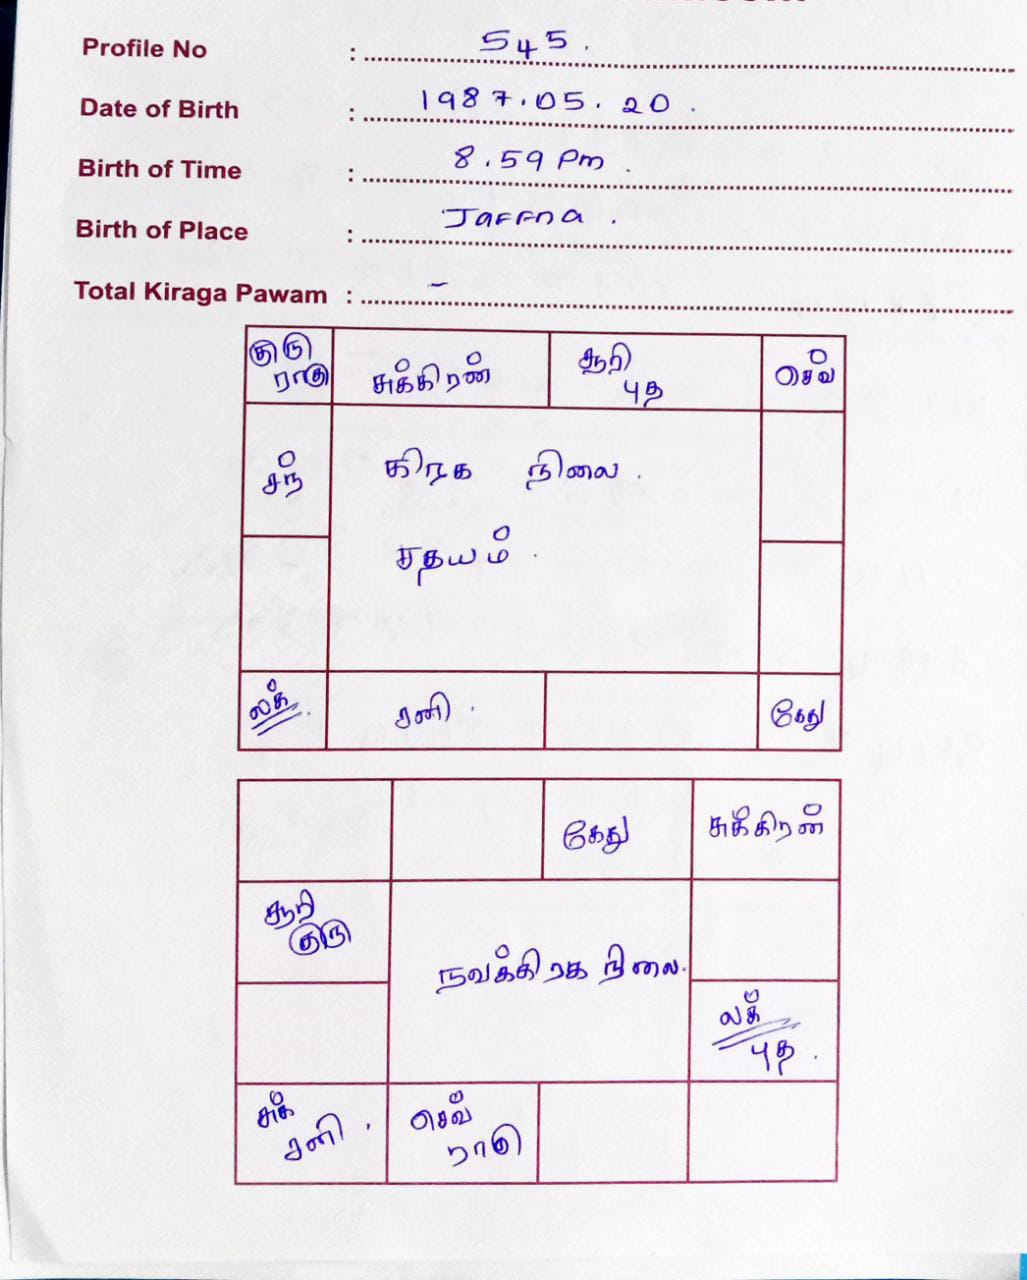 Profile No : 545.
Date of Birth : 1987.05.20.
Birth of Time : 8.59 Pm.
Birth of Place : Jaffna.
Total Kiraga Pawam : -
குரு சுக்கிரன் சூரி செவ்
ராகு புத
சந் கிரக நிலை.
சதயம்.
லக் சனி. கேது
கேது சுக்கிரன்
சூரி
குரு
நவக்கிரக நிலை.
லக்
புத.
செவ்
சனி. ராகு